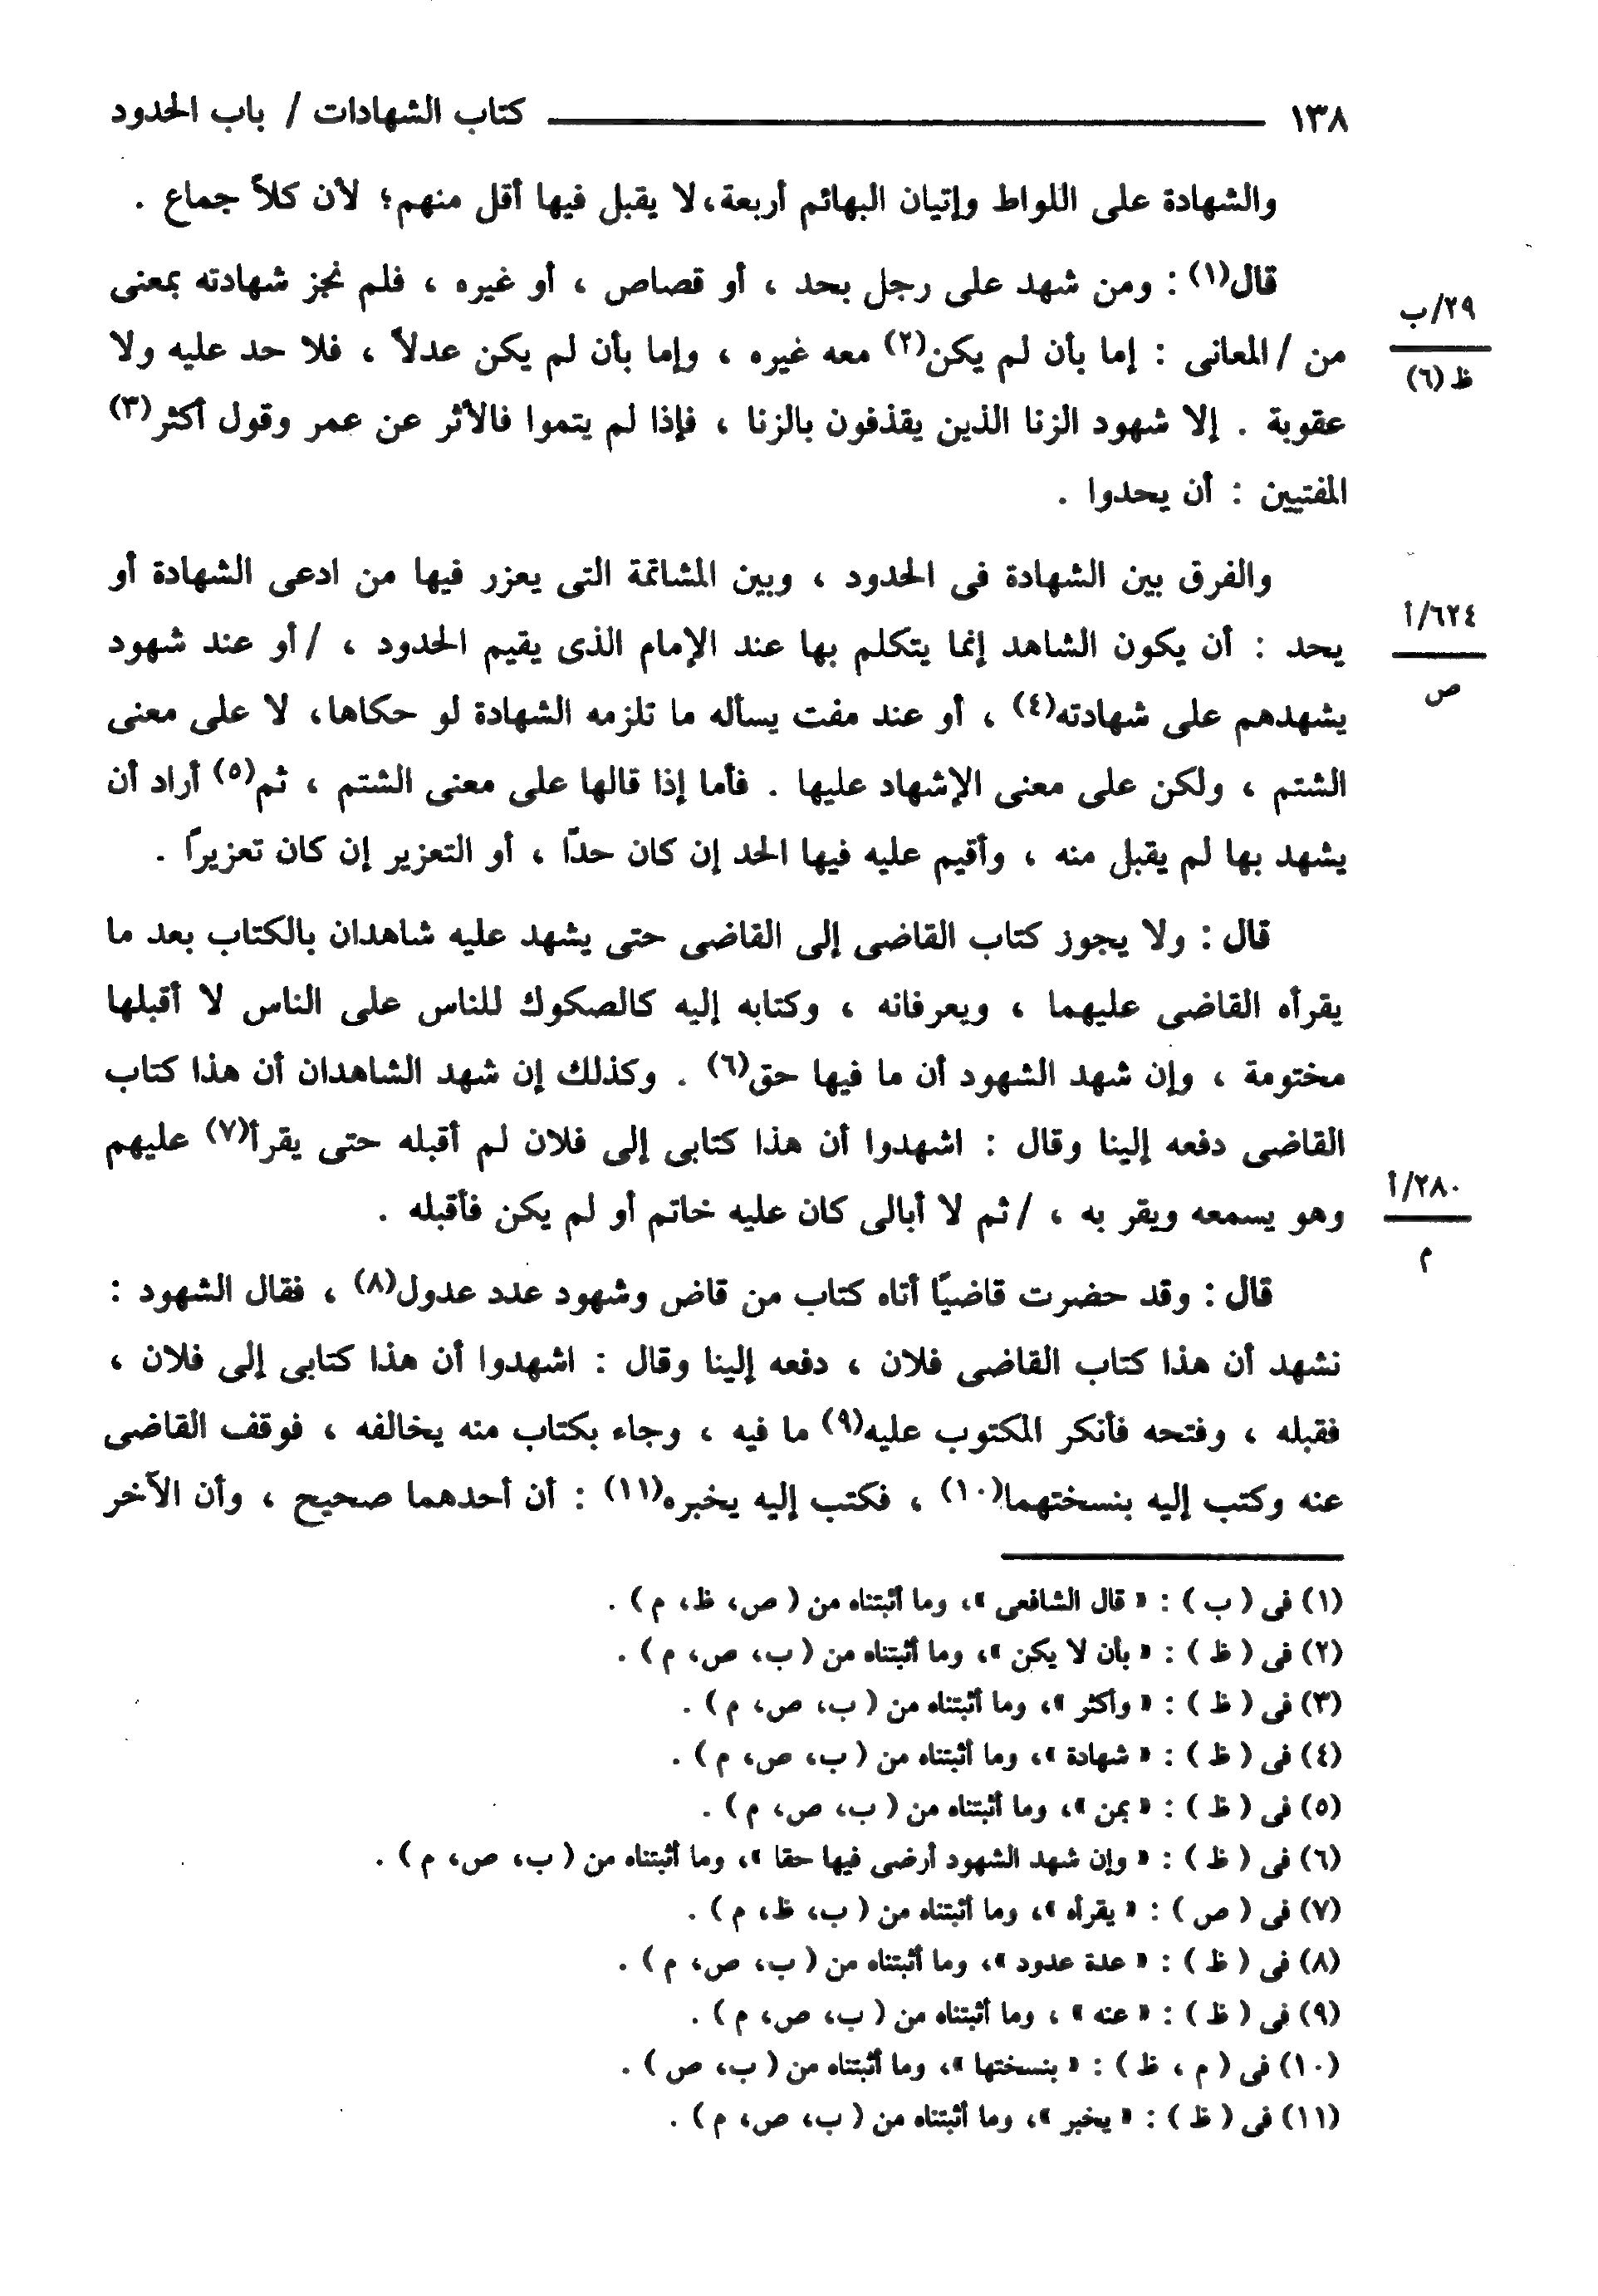 ١٣٨ كتاب الشهادات / باب الحدود
والشهادة على اللواط وإتيان البهائم أربعة، لا يقبل فيها أقل منهم؛ لأن كلاً جماع .
قال(١) : ومن شهد على رجل بحد ، أو قصاص ، أو غيره ، فلم نجز شهادته بمعنى
٢٩/ب
من / المعانى : إما بأن لم يكن(٢) معه غيره ، وإما بأن لم يكن عدلاً ، فلا حد عليه ولا
ظ (٦)
عقوبة . إلا شهود الزنا الذين يقذفون بالزنا ، فإذا لم يتموا فالأثر عن عمر وقول أكثر(٣)
المفتيين : أن يحدوا .
والفرق بين الشهادة فى الحدود ، وبين المشاتمة التى يعزر فيها من ادعى الشهادة أو
٦٢٤/أ
يحد : أن يكون الشاهد إنما يتكلم بها عند الإمام الذى يقيم الحدود ، / أو عند شهود
ص
يشهدهم على شهادته(٤) ، أو عند مفت يسأله ما تلزمه الشهادة لو حكاها، لا على معنى
الشتم ، ولكن على معنى الإشهاد عليها . فأما إذا قالها على معنى الشتم ، ثم(٥) أراد أن
يشهد بها لم يقبل منه ، وأقيم عليه فيها الحد إن كان حدًا ، أو التعزير إن كان تعزيرًا .
قال : ولا يجوز كتاب القاضى إلى القاضى حتى يشهد عليه شاهدان بالكتاب بعد ما
يقرأه القاضى عليهما ، ويعرفانه ، وكتابه إليه كالصكوك للناس على الناس لا أقبلها
مختومة ، وإن شهد الشهود أن ما فيها حق(٦) . وكذلك إن شهد الشاهدان أن هذا كتاب
القاضى دفعه إلينا وقال : اشهدوا أن هذا كتابى إلى فلان لم أقبله حتى يقرأ(٧) عليهم
٢٨٠/أ
وهو يسمعه ويقر به ، / ثم لا أبالى كان عليه خاتم أو لم يكن فأقبله .
م
قال : وقد حضرت قاضيًا أتاه كتاب من قاض وشهود عدد عدول(٨) ، فقال الشهود :
نشهد أن هذا كتاب القاضى فلان ، دفعه إلينا وقال : اشهدوا أن هذا كتابى إلى فلان ،
فقبله ، وفتحه فأنكر المكتوب عليه(٩) ما فيه ، وجاء بكتاب منه يخالفه ، فوقف القاضى
عنه وكتب إليه بنسختهما(١٠) ، فكتب إليه يخبره(١١) : أن أحدهما صحيح ، وأن الآخر
(١) فى ( ب ) : « قال الشافعى »، وما أثبتناه من ( ص، ظ، م ) .
(٢) فى ( ظ ) : « بأن لا يكن »، وما أثبتناه من ( ب، ص، م ) .
(٣) فى ( ظ ) : « وأكثر »، وما أثبتناه من ( ب، ص، م ) .
(٤) فى ( ظ ) : « شهادة »، وما أثبتناه من ( ب، ص، م ) .
(٥) فى ( ظ ) : « بمن »، وما أثبتناه من ( ب، ص، م ) .
(٦) فى ( ظ ) : « وإن شهد الشهود أرضى فيها حقا »، وما أثبتناه من ( ب، ص، م ) .
(٧) فى ( ص ) : « يقرأه »، وما أثبتناه من ( ب، ظ، م ) .
(٨) فى ( ظ ) : « عدة عدود »، وما أثبتناه من ( ب، ص، م ) .
(٩) فى ( ظ ) : « عنه » ، وما أثبتناه من ( ب، ص، م ) .
(١٠) فى ( م ، ظ ) : « بنسختها »، وما أثبتناه من ( ب، ص ) .
(١١) فى ( ظ ) : « يخبر »، وما أثبتناه من ( ب، ص، م ) .